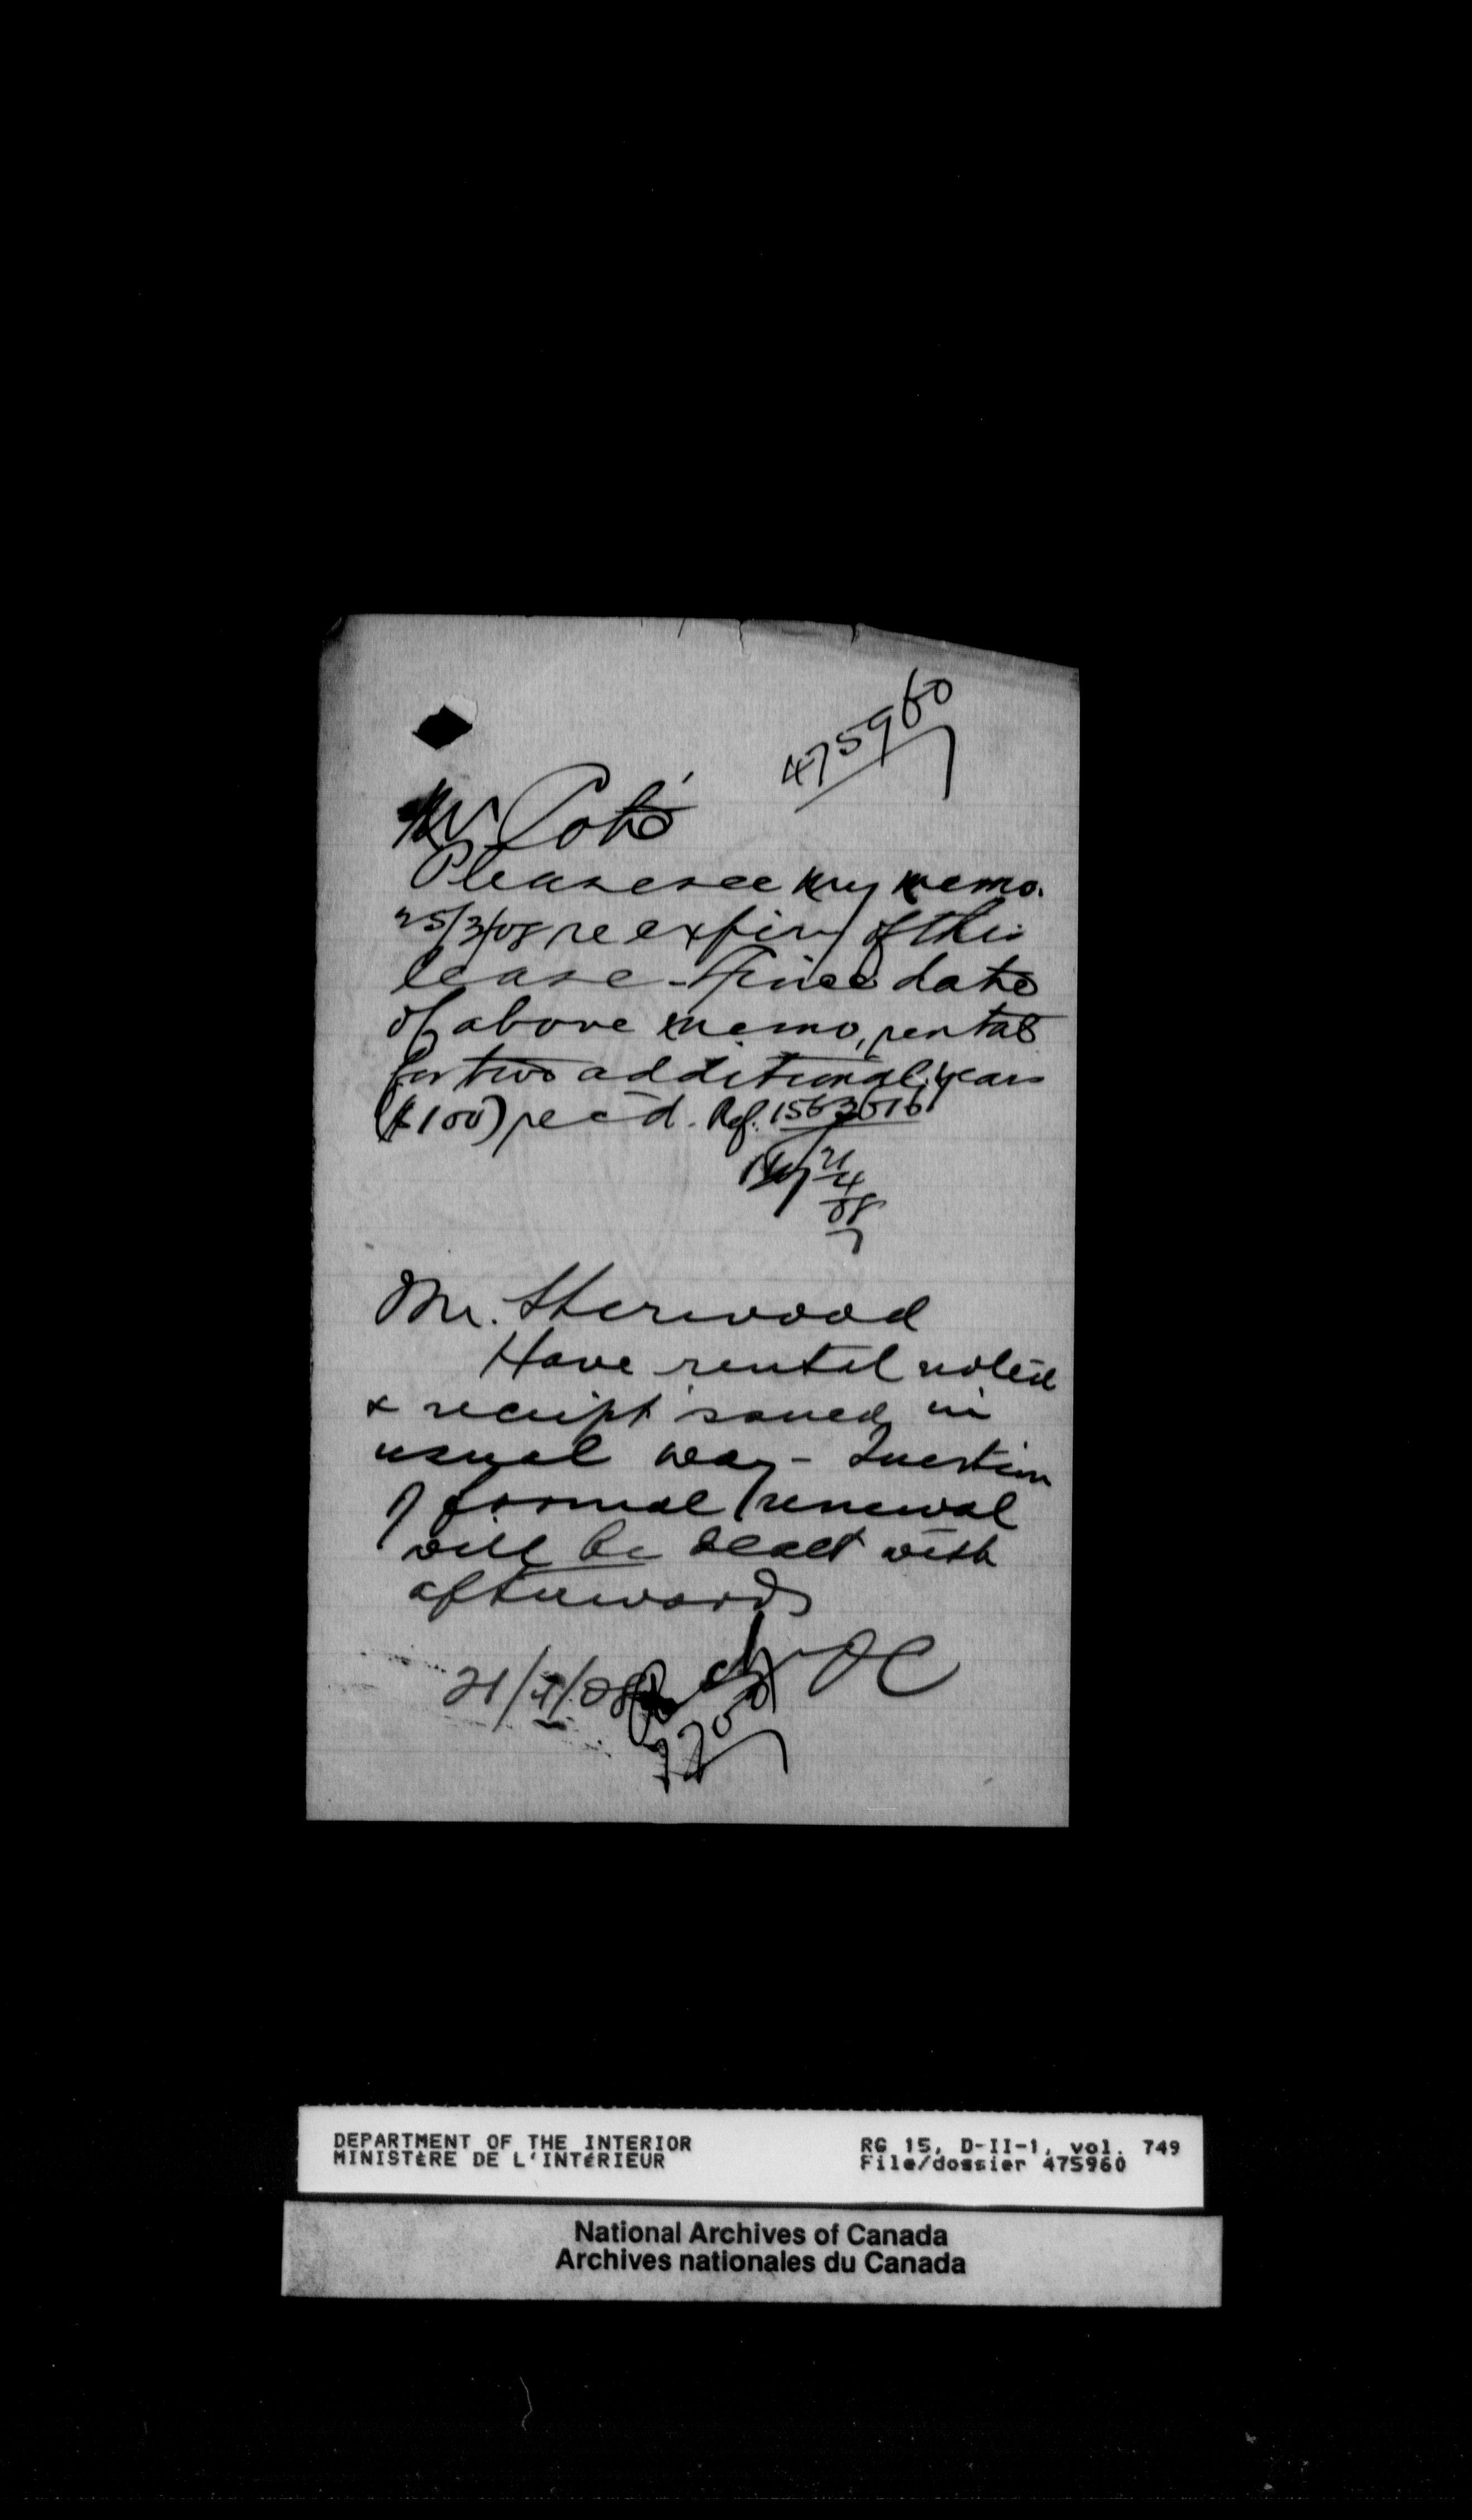 475960
Mr Coté
Please see my memo.
25/3/08 re expiry of this
lease - Since date
of above memo, rental
for two additional years
($100) rec'd. Ref. 1563616
21
4
08
Mr. Sherwood
Have rental noted
& receipt issued in
usual way - Question
of formal renewal
will be dealt with
afterwards
21/4/08
DEPARTMENT OF THE INTERIOR
MINISTÈRE DE L'INTÉRIEUR
RG 15, D-II-1, vol. 749
File/dossier 475960
National Archives of Canada
Archives nationales du Canada